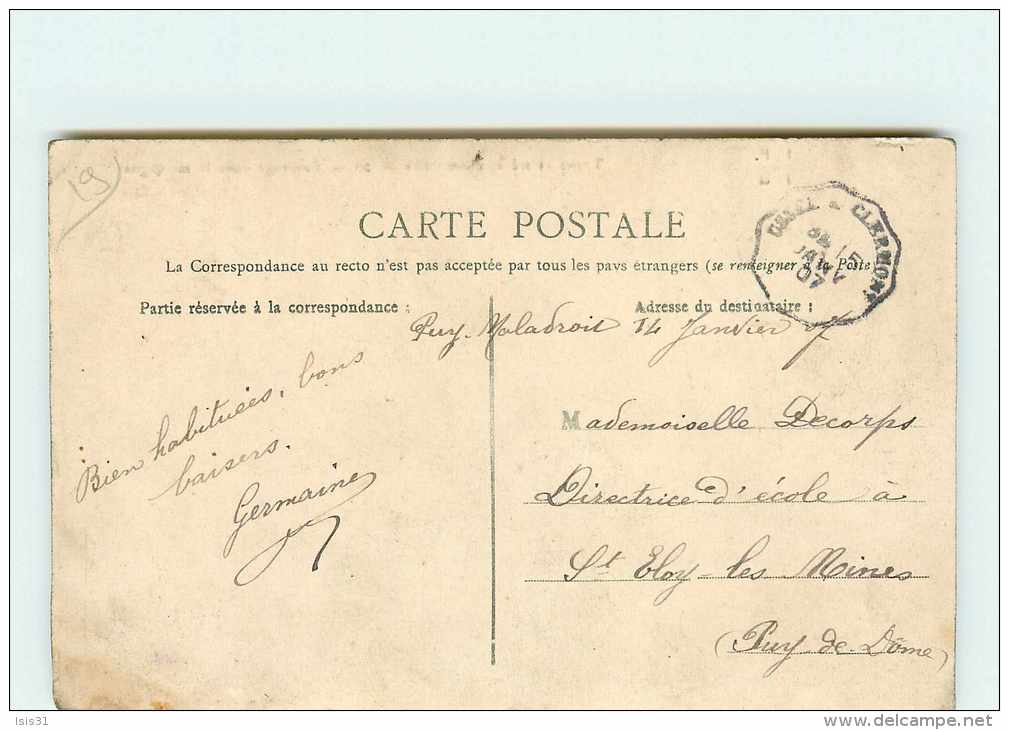 19
CARTE POSTALE
USSEL A CLERMONT
15
JANV
07
La Correspondance au recto n'est pas acceptée par tous les pays étrangers (se renseigner à la Poste)
Partie réservée à la correspondance :
Adresse du destinataire :
Puy-Maladroit 14 Janvier 07
Bien habituées, bons
baisers.
Germaine
Mademoiselle Decorps
Directrice d'école à
St Eloy-les Mines
(Puy-de-Dôme)
Isis31
www.delcampe.net